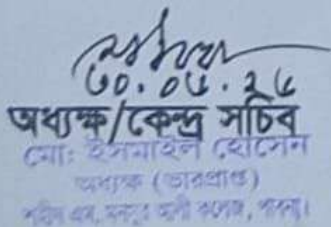 ৩০.০৬.২৫
অধ্যক্ষ/কেন্দ্র সচিব
মো: ইসমাইল হোসেন
অধ্যক্ষ (ভারপ্রাপ্ত)
শহীদ এম, মনসুর আলী কলেজ, পাবনা।